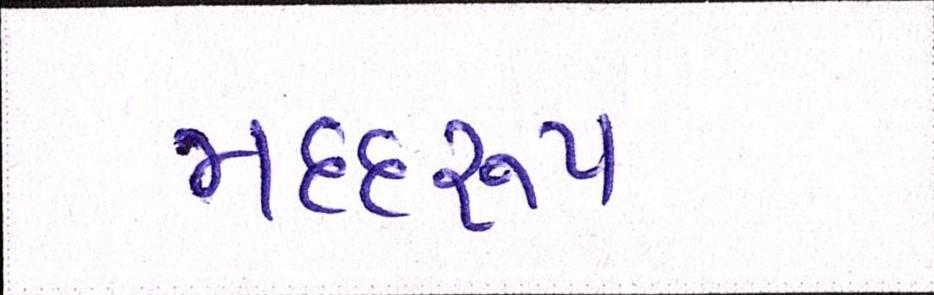 મદદરૂપ